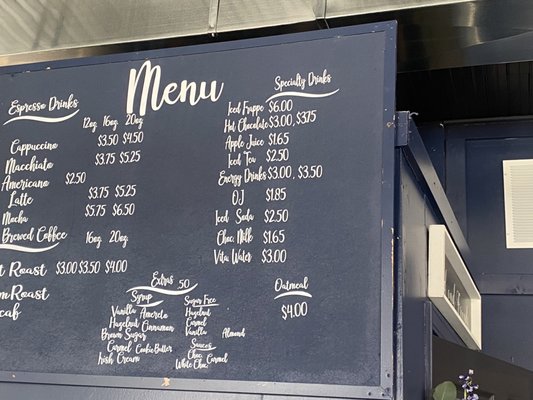 Menu
Espresso Drinks
12oz 16oz 20oz
Cappuccino $3.50 $4.50
Macchiato $3.75 $5.25
Americano $2.50
Latte $3.75 $5.25
Mocha $5.75 $6.50
Brewed Coffee
16oz 20oz
Roast $3.00 $3.50 $4.00
Roast
Specialty Drinks
Iced Frappe $6.00
Hot Chocolate $3.00, $3.75
Apple Juice $1.65
Iced Tea $2.50
Energy Drinks $3.00, $3.50
OJ $1.85
Iced Soda $2.50
Choc. Milk $1.65
Vita Water $3.00
Extras .50
Syrup
Vanilla Amereto
Hazelnut Cinnamon
Brown Sugar
Carmel Cookie Butter
Irish Cream
Sugar Free
Hazelnut
Carmel
Vanilla Almond
Sauces
Choc. Carmel
White Choc
Oatmeal
$4.00